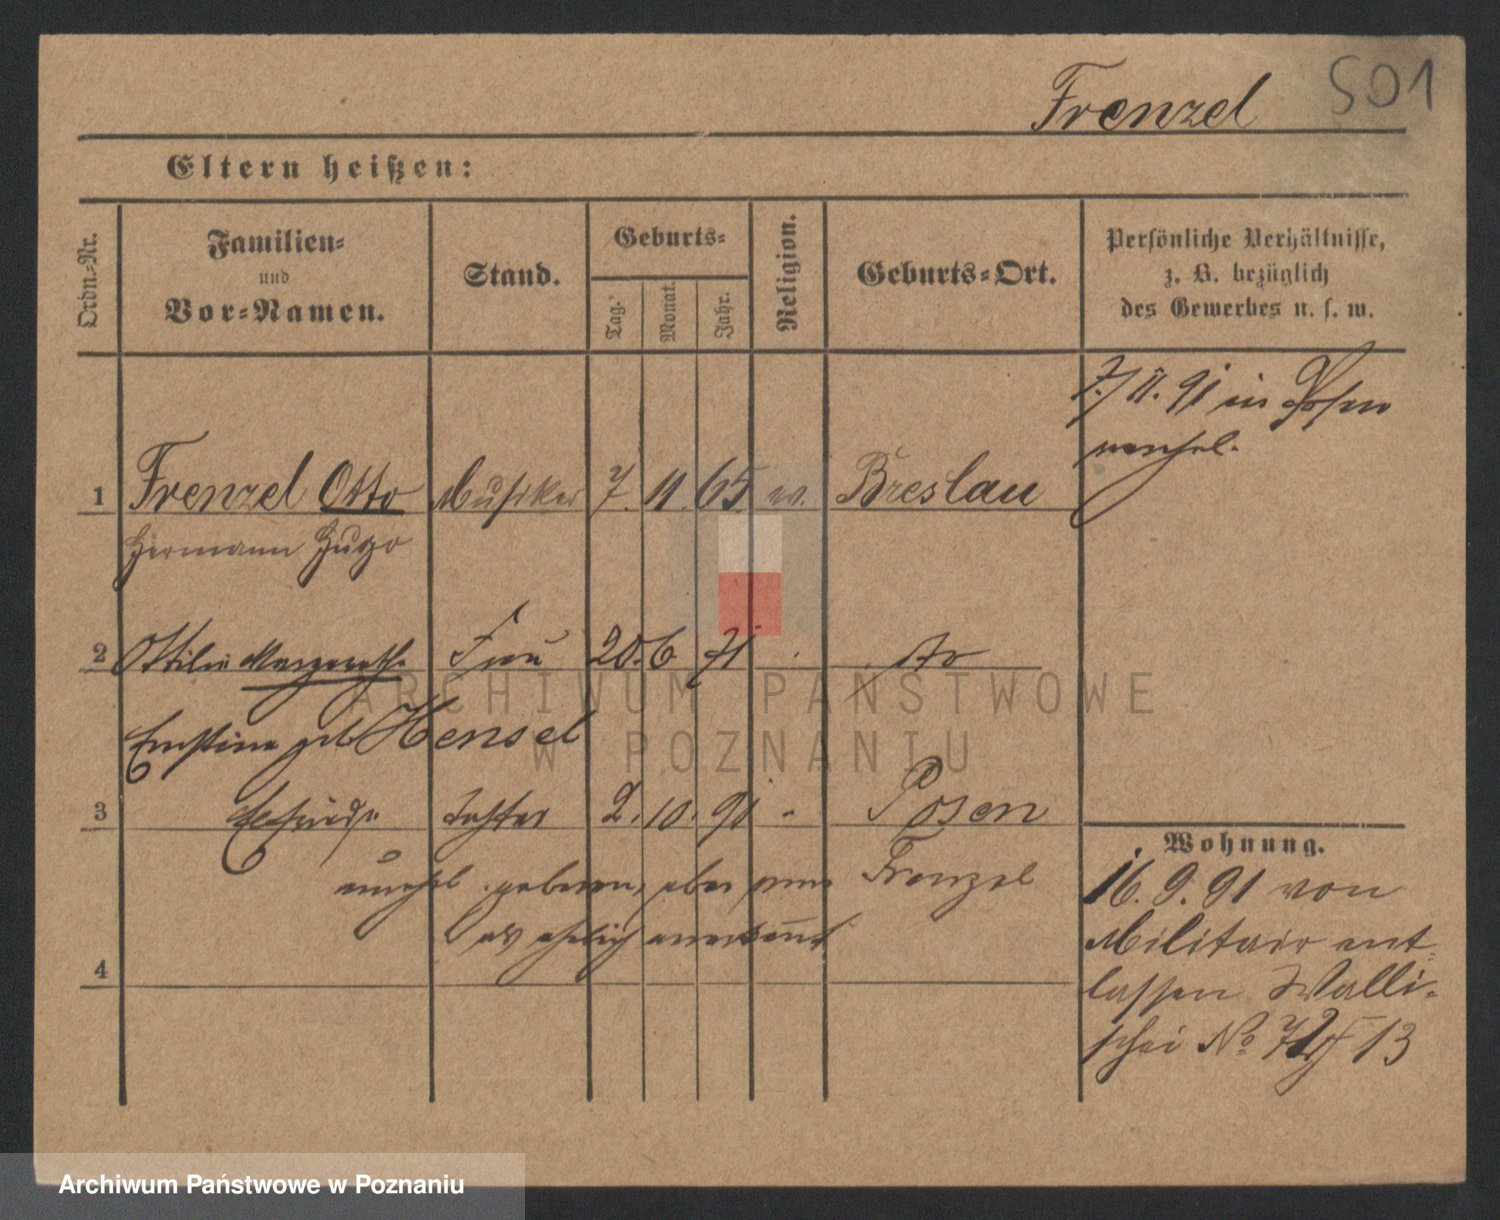 Frenzel 501
Eltern heißen:
Ordn.-Nr.
Familien-
und
Vor-Namen.
Stand.
Geburts-
Tag.
Monat.
Jahr.
Religion.
Geburts-Ort.
Persönliche Verhältnisse,
z. B. bezüglich
des Gewerbes u. s. w.
7./11. 91 in Posen
verehel.
1 Frenzel Otto Musiker 7. 11. 65 ev. Breslau
Hermann Hugo
2 Ottilie Margarethe Frau 20. 6. 71 do
Ernstine geb Hensel
3 Elfriede Tochter 2. 10. 91 Posen
unehel. geboren, aber Frenzel
als ehelich anerkannt
4
Wohnung.
16. 9. 91 von
Militair ent-
lassen Walli-
schei No 13
ARCHIWUM PAŃSTWOWE
W POZNANIU
Archiwum Państwowe w Poznaniu